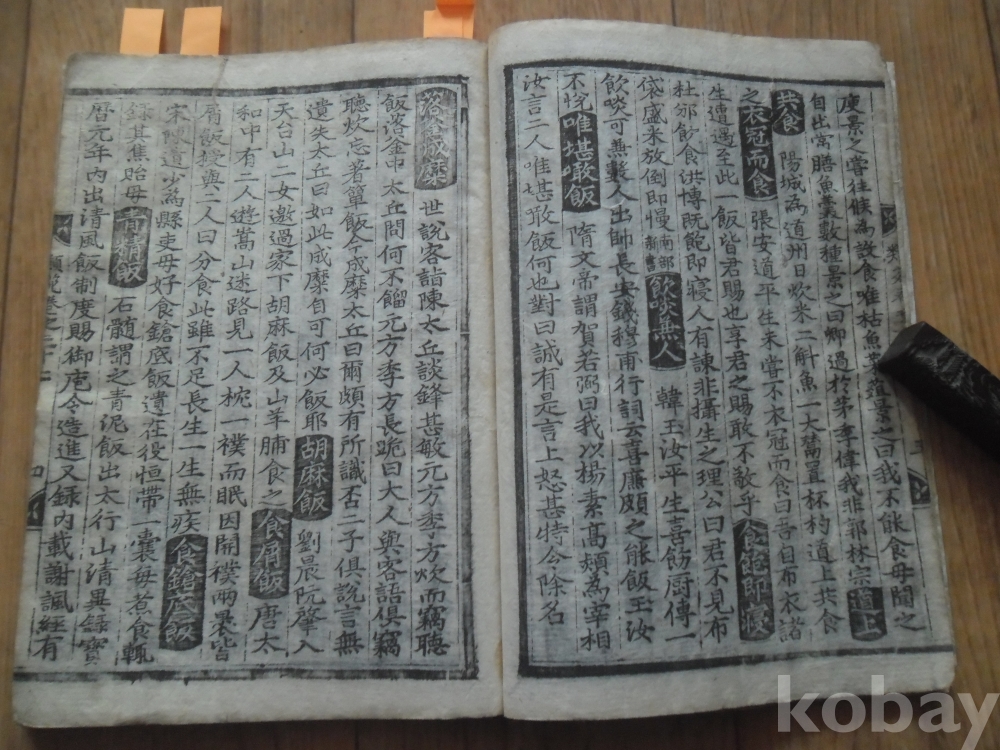 庾景之嘗往候爲設食唯枯魚菜葅景之曰我不能食母聞之
自出常膳魚羹數種景之曰卿過於茅季偉我非郭林宗 道上
共食 陽城爲道州日炊米二斛魚一大鬵置杯杓道上共食
之 衣冠而食 張安道平生未嘗不衣冠而食曰吾自布衣諸
生遭遇至此一飯皆君賜也享君之賜敢不敬乎 食飽即寢
杜邠飮食洪博旣飽即寢人有諫非攝生之理公曰君不見布
袋盛米放倒即慢 南部新書 飮啖無人 韓玉汝平生喜飭廚傳一
飮啖可無數人出帥長安錢穆甫行詞云喜廉頗之能飯玉汝
不悅 唯堪噉飯 隋文帝謂賀若弼曰我以楊素高熲爲宰相
汝言二人唯堪噉飯何也對曰誠有是言上怒甚特令除名
落釜成糜 世說客詣陳太丘談鋒甚敏元方季方炊而竊聽
飯落釜中太丘問何不餾元方季方長跪曰大人與客語俱竊
聽炊忘著簞飯今成糜太丘曰爾頗有所識否二子俱說言無
遺失太丘曰如此成糜自可何必飯耶 胡麻飯 劉晨阮肇入
天台山二女邀過家下胡麻飯及山羊脯食之 食屑飯 唐太
和中有二人遊嵩山迷路見一人枕一襆而眠因開襆兩裹皆
屑飯授與二人曰分食此雖不足長生一生無疾 食鎗底飯
宋陳遺少爲縣吏母好食鎗底飯遺在役恒帶一囊每煮食輒
錄其焦貽母 靑精飯 石髓謂之靑泥飯出太行山淸異錄寶
曆元年內出淸風飯制度賜御庖令造進又錄內載謝諷經有
四
kobay